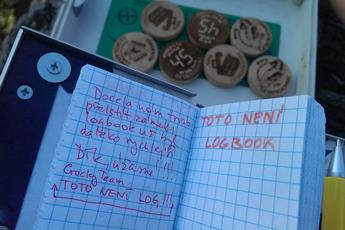 Docela nám trvalo
přelstít zámky
logbook už byl
daleko rychlejší
Dík, užasné!!!
Crocky Team
TOTO NENÍ LOG!!!
TOTO NENÍ
LOGBOOK
45